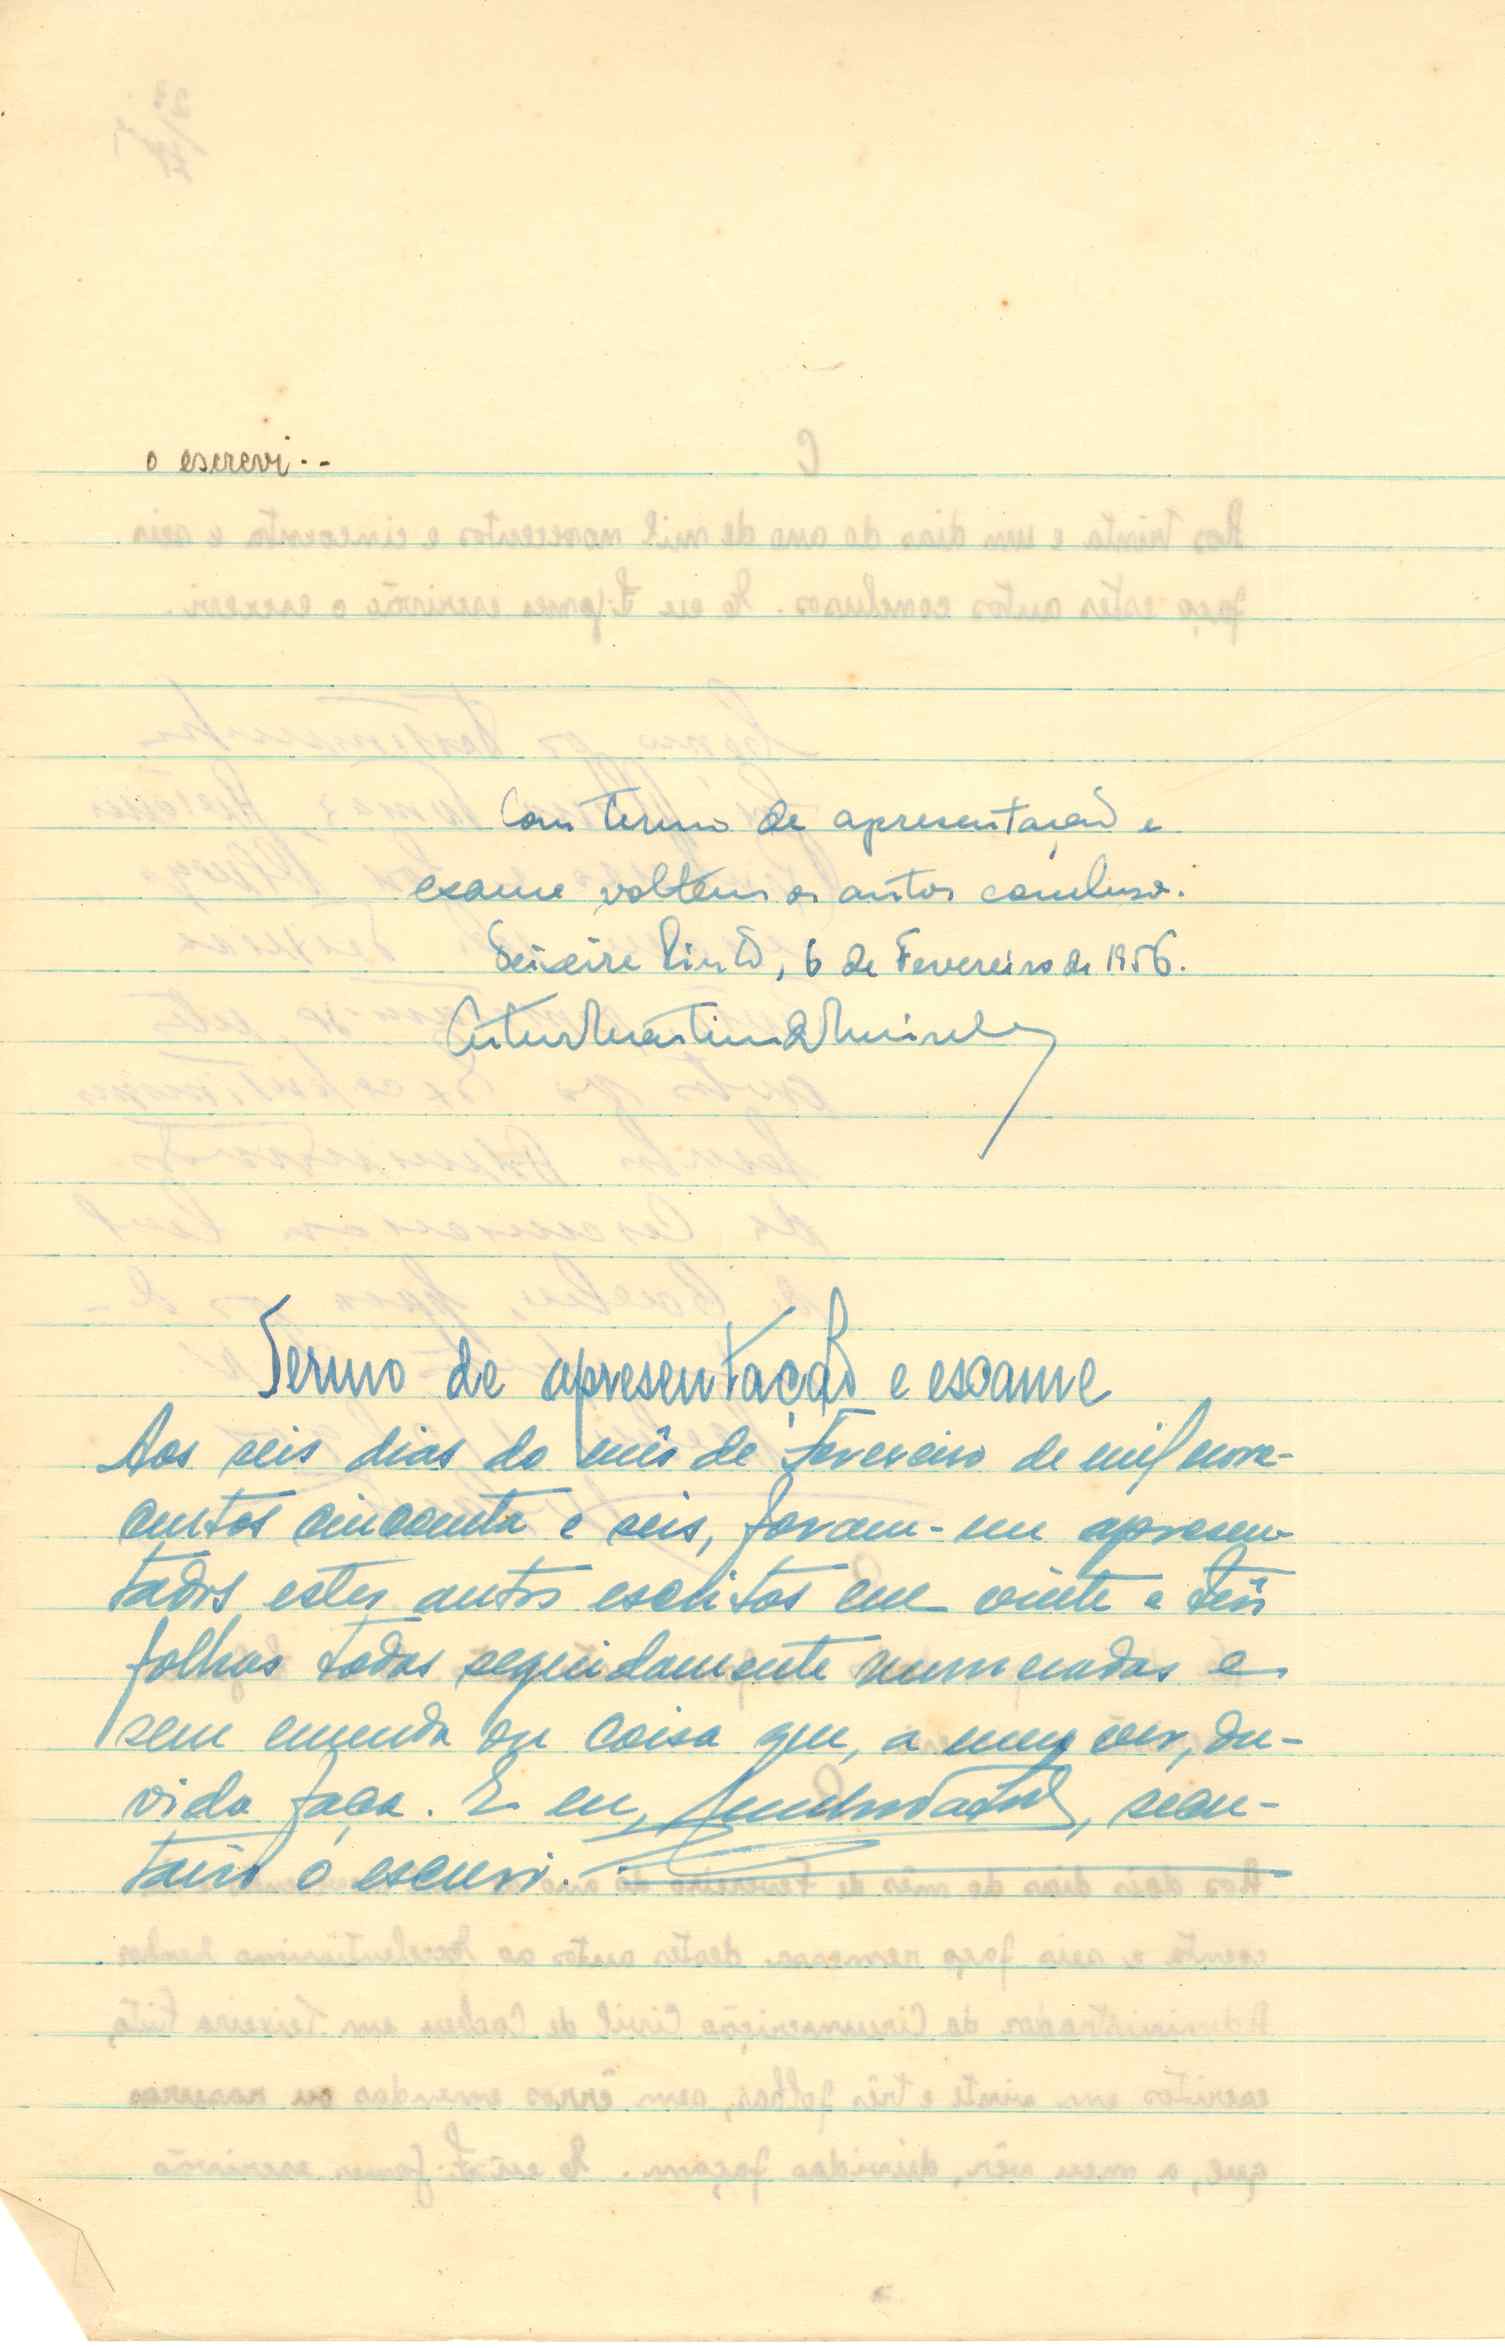 o escrevi.--
Com termo de apresentação e
exame voltem os autos conclusos.
Teixeira Pinto, 6 de Fevereiro de 1956.
Artur Martins
Termo de apresentação e exame
Aos seis dias do mês de Fevereiro de mil nove-
centos cincoenta e seis, foram-me apresen-
tados estes autos escritos em vinte e três
folhas todas seguidamente numeradas e
sem emenda ou coisa que, a meu ver, du-
vida faça. E eu, , secre-
tário o escrevi.